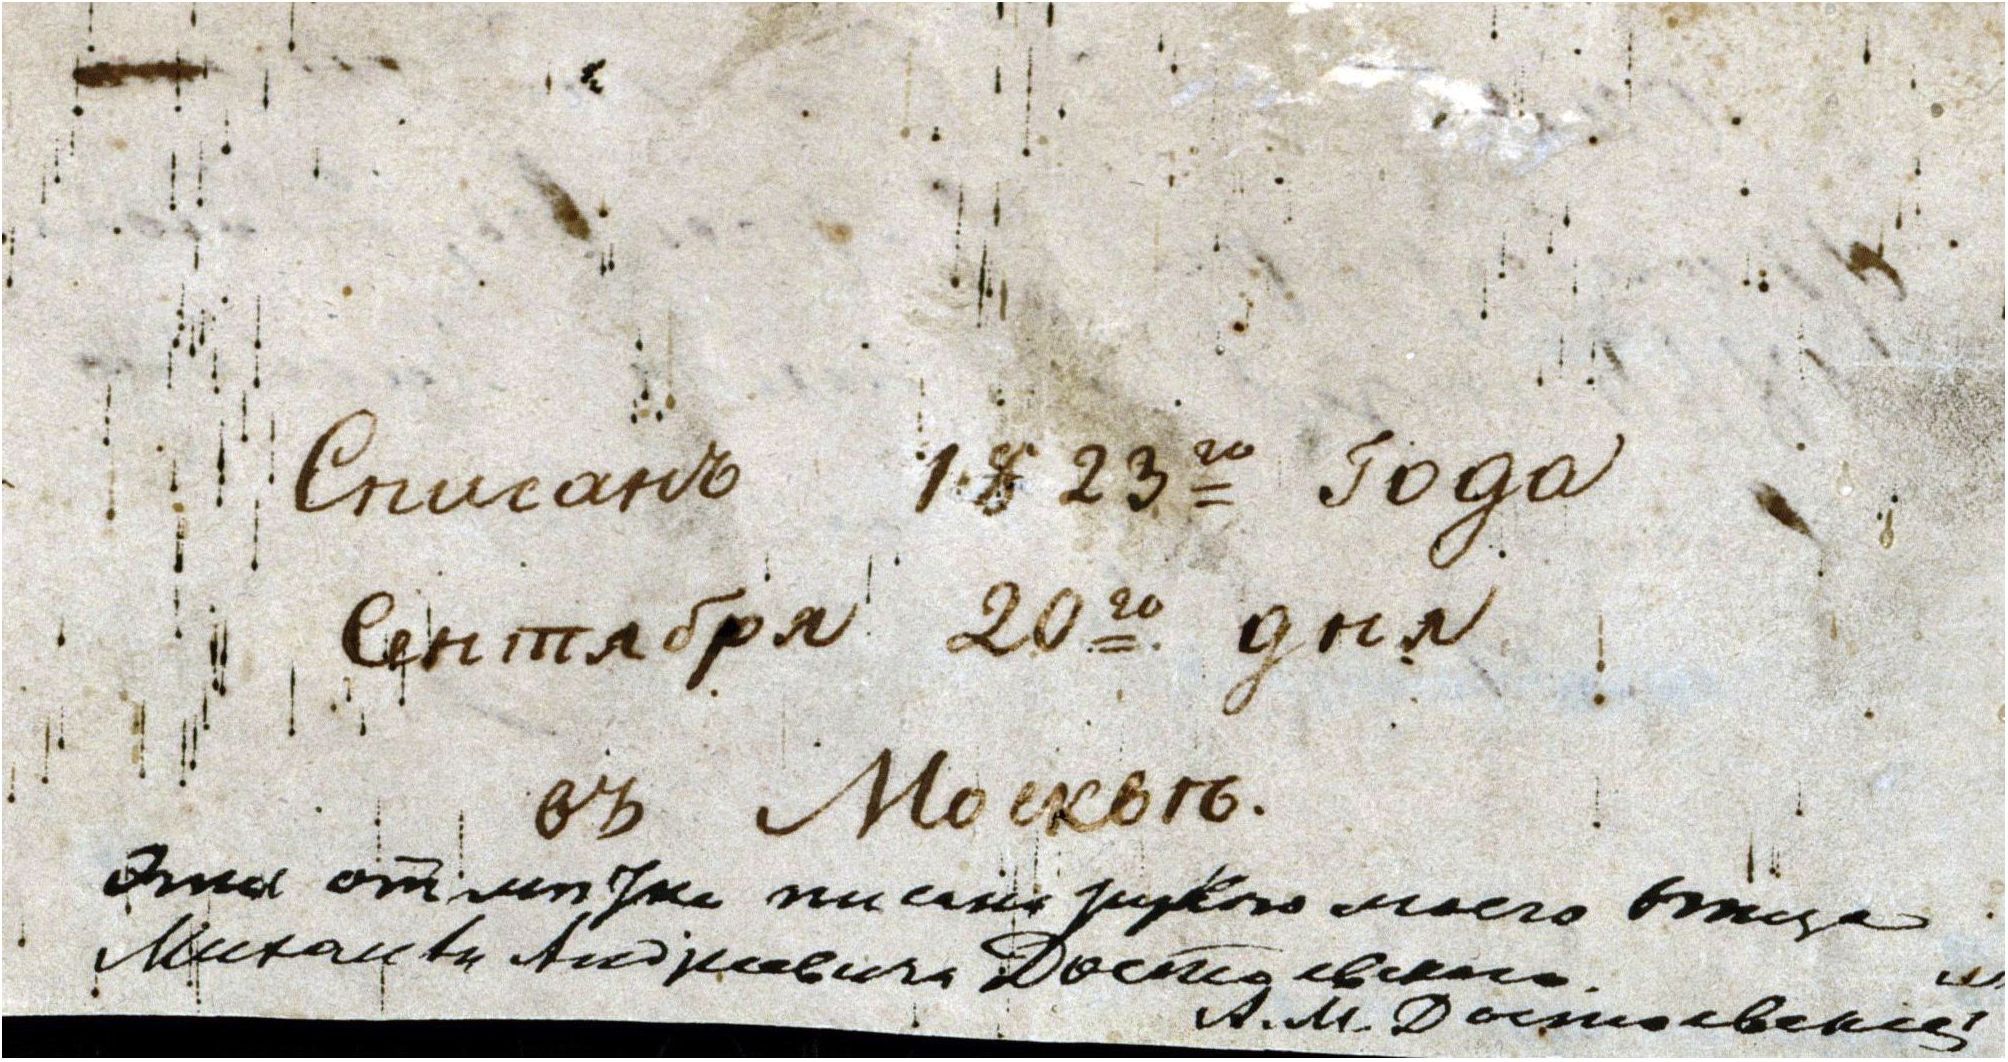 Списанъ 1823го Года
Сентября 20го дня
въ Москвѣ.
Эта отмѣтка писана рукою моего Отца
Михаила Андреевича Достоевскаго.
А. М. Достоевскій